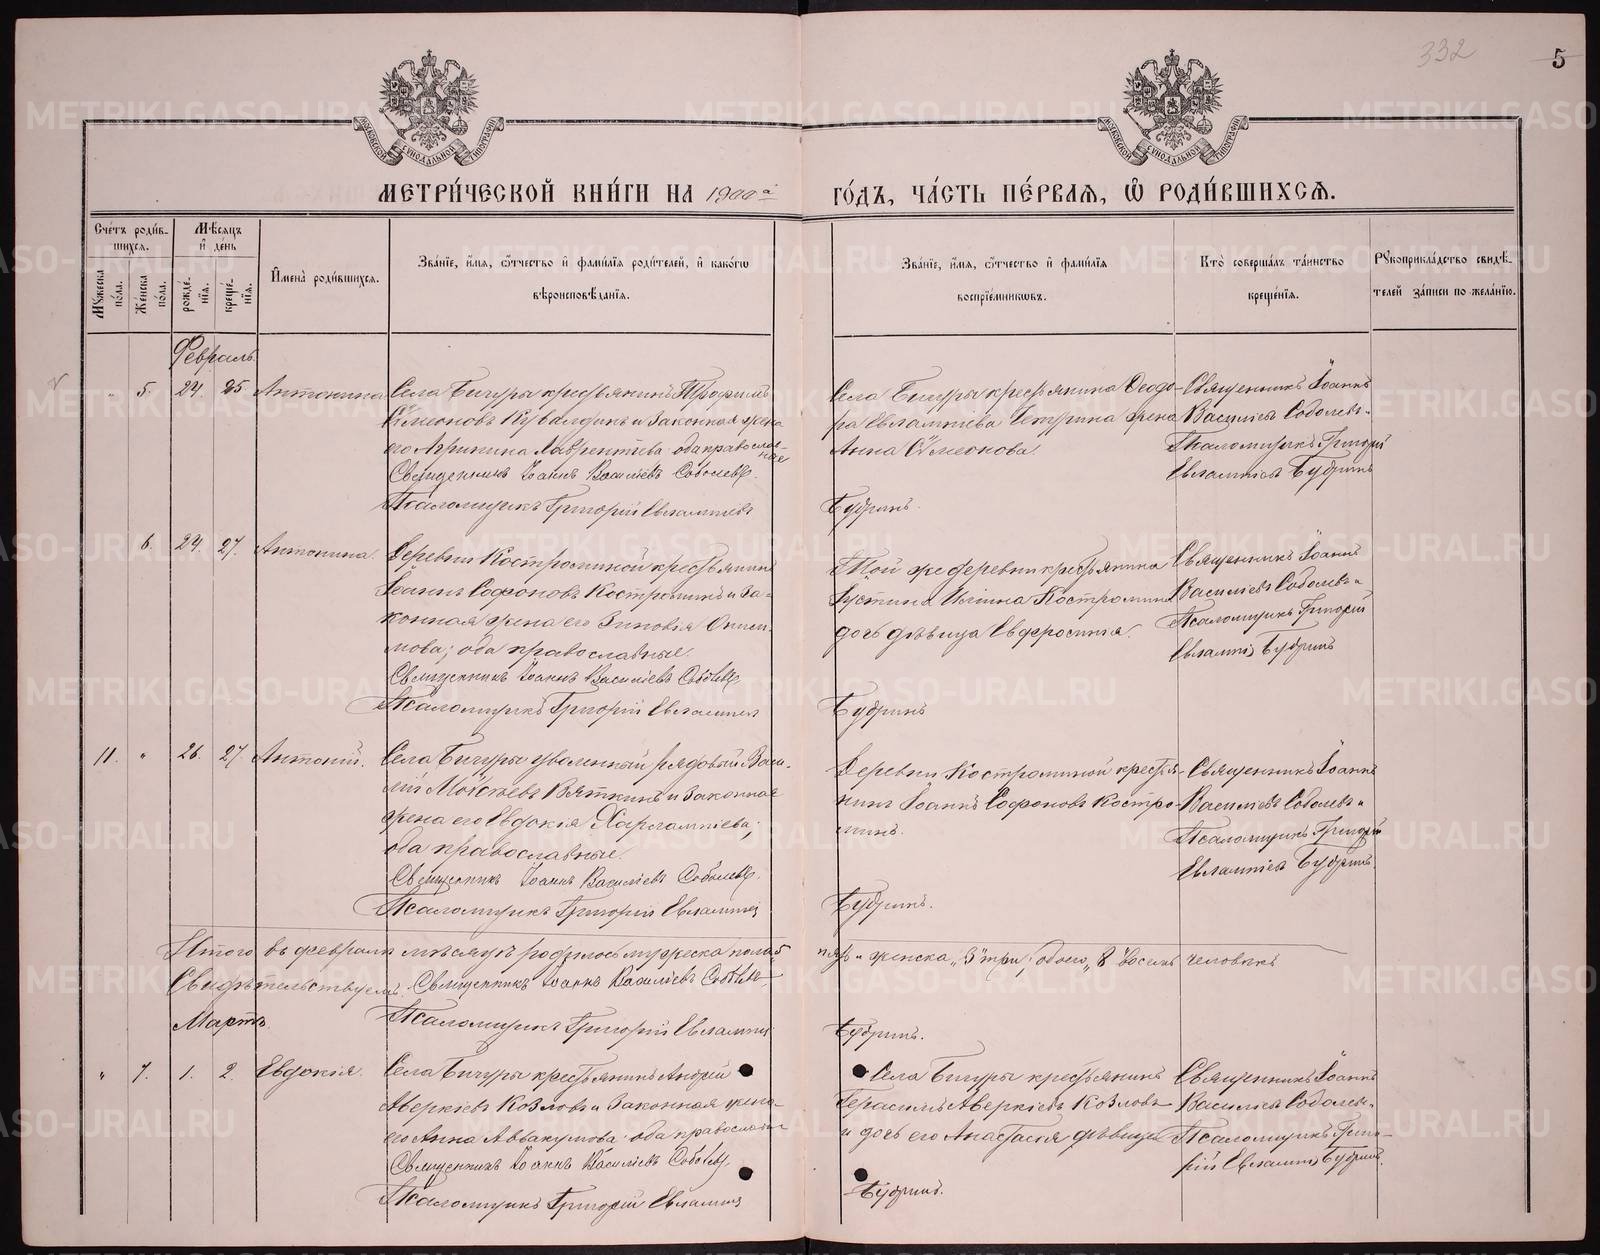 332
5
МЕТРИ́ЧЕСКОЙ КНИ́ГИ НА 1900й
ГО́ДЪ, ЧА́СТЬ ПЕ́РВАЯ, Ѡ РОДИ́ВШИХСѦ.
Сче́тъ роди́в-
шихсѧ.
Мѣ́сѧцъ
и де́нь
Мꙋжеска по́ла.
Же́нска по́ла.
рожде́-
нїѧ.
креще́-
нїѧ.
Имена̀ роди́вшихсѧ.
Зва́нїе, и́мѧ, ѻ́тчество и фами́лїѧ роди́телей, и како́гѡ
вѣроисповѣ́данїѧ.
Зва́нїе, и́мѧ, ѻ́тчество и фами́лїѧ
воспрїе́мникѡвъ.
Кто̀ соверша́лъ та́инство
креще́нїѧ.
Рꙋкоприкла́дство свидѣ́-
телей за́писи по жела́нїю.
Февраль
" 5. 24. 25. Антонина
Села Бичуры крестьянинъ Трофимъ
Сѵмеоновъ Кувалдинъ и законная жена
его Агрипина Лаврентіева оба православ-
ные
Священникъ Іоаннъ Василіевъ Соболевъ.
Псаломщикъ Григорій Евлампіевъ
Села Бичуры крестьянина Ѳеодо-
ра Евлампіева жена
Анна Сѵмеонова.
Будринъ.
Священникъ Іоаннъ
Василіевъ Соболевъ и
Псаломщикъ Григорій
Евлампіевъ Будринъ
6. 24. 27. Антонина.
Деревни Костроминой крестьянинъ
Іоаннъ Софоновъ Костроминъ и за-
конная жена его Зиновія Ониси-
мова; оба православные.
Священникъ Іоаннъ Василіевъ Соболевъ
Псаломщикъ Григорій Евлампіевъ
Той же деревни крестьянина
Іустина Костромина
дочь дѣвица Евфросинія.
Будринъ
Священникъ Іоаннъ
Василіевъ Соболевъ и
Псаломщикъ Григорій
Евлампіевъ Будринъ
11. " 26. 27 Антоній.
Села Бичуры уволенный рядовый Васи-
лій Моѵсеевъ Вяткинъ и законная
жена его Евдокія Харлампіева;
оба православные.
Священникъ Іоаннъ Василіевъ Соболевъ.
Псаломщикъ Григорій Евлампіевъ
Деревни Костроминой крестья-
нинъ Іоаннъ Софоновъ Костро-
минъ.
Будринъ.
Священникъ Іоаннъ
Василіевъ Соболевъ и
Псаломщикъ Григорій
Евлампіевъ Будринъ.
Итого въ февралѣ мѣсяцѣ родилось мужеска пола 5
пять и женска „3" три, обоего „8" восемь человѣкъ
Свидѣтельствуемъ: Священникъ Іоаннъ Василіевъ Соболевъ
Псаломщикъ Григорій Евлампіевъ
Будринъ.
Мартъ.
" 7. 1. 2. Евдокія.
Села Бичуры крестьянинъ Андрей
Аверкіевъ Козловъ и законная жена
его Анна Аввакумова оба православные
Священникъ Іоаннъ Василіевъ Соболевъ
Псаломщикъ Григорій Евлампіевъ
Села Бичуры крестьянинъ
Герасимъ Аверкіевъ Козловъ
и дочь его Анастасія дѣвица
Будринъ.
Священникъ Іоаннъ
Василіевъ Соболевъ и
Псаломщикъ Григо-
рій Евлампіевъ Будринъ.
METRIKI.GASO-URAL.RU